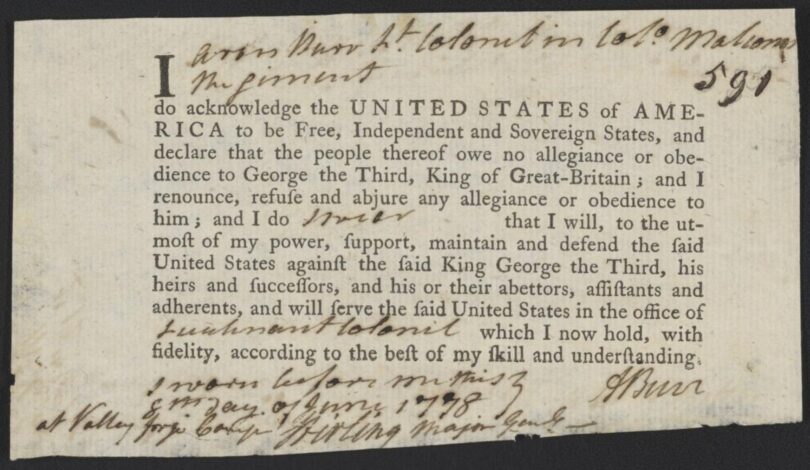 I aron Burr Lt Colonel in Colo. Malcoms
Regiment
591
do acknowledge the UNITED STATES of AME-
RICA to be Free, Independent and Sovereign States, and
declare that the people thereof owe no allegiance or obe-
dience to George the Third, King of Great-Britain ; and I
renounce, refuſe and abjure any allegiance or obedience to
him ; and I do swear that I will, to the ut-
moſt of my power, ſupport, maintain and defend the ſaid
United States againſt the ſaid King George the Third, his
heirs and ſucceſſors, and his or their abettors, aſſiſtants and
adherents, and will ſerve the ſaid United States in the office of
Lieutenant Colonel which I now hold, with
fidelity, according to the beſt of my ſkill and underſtanding.
Sworn before me this ABurr
day of June 1778
at Valley forge Camp Stirling Major Genl